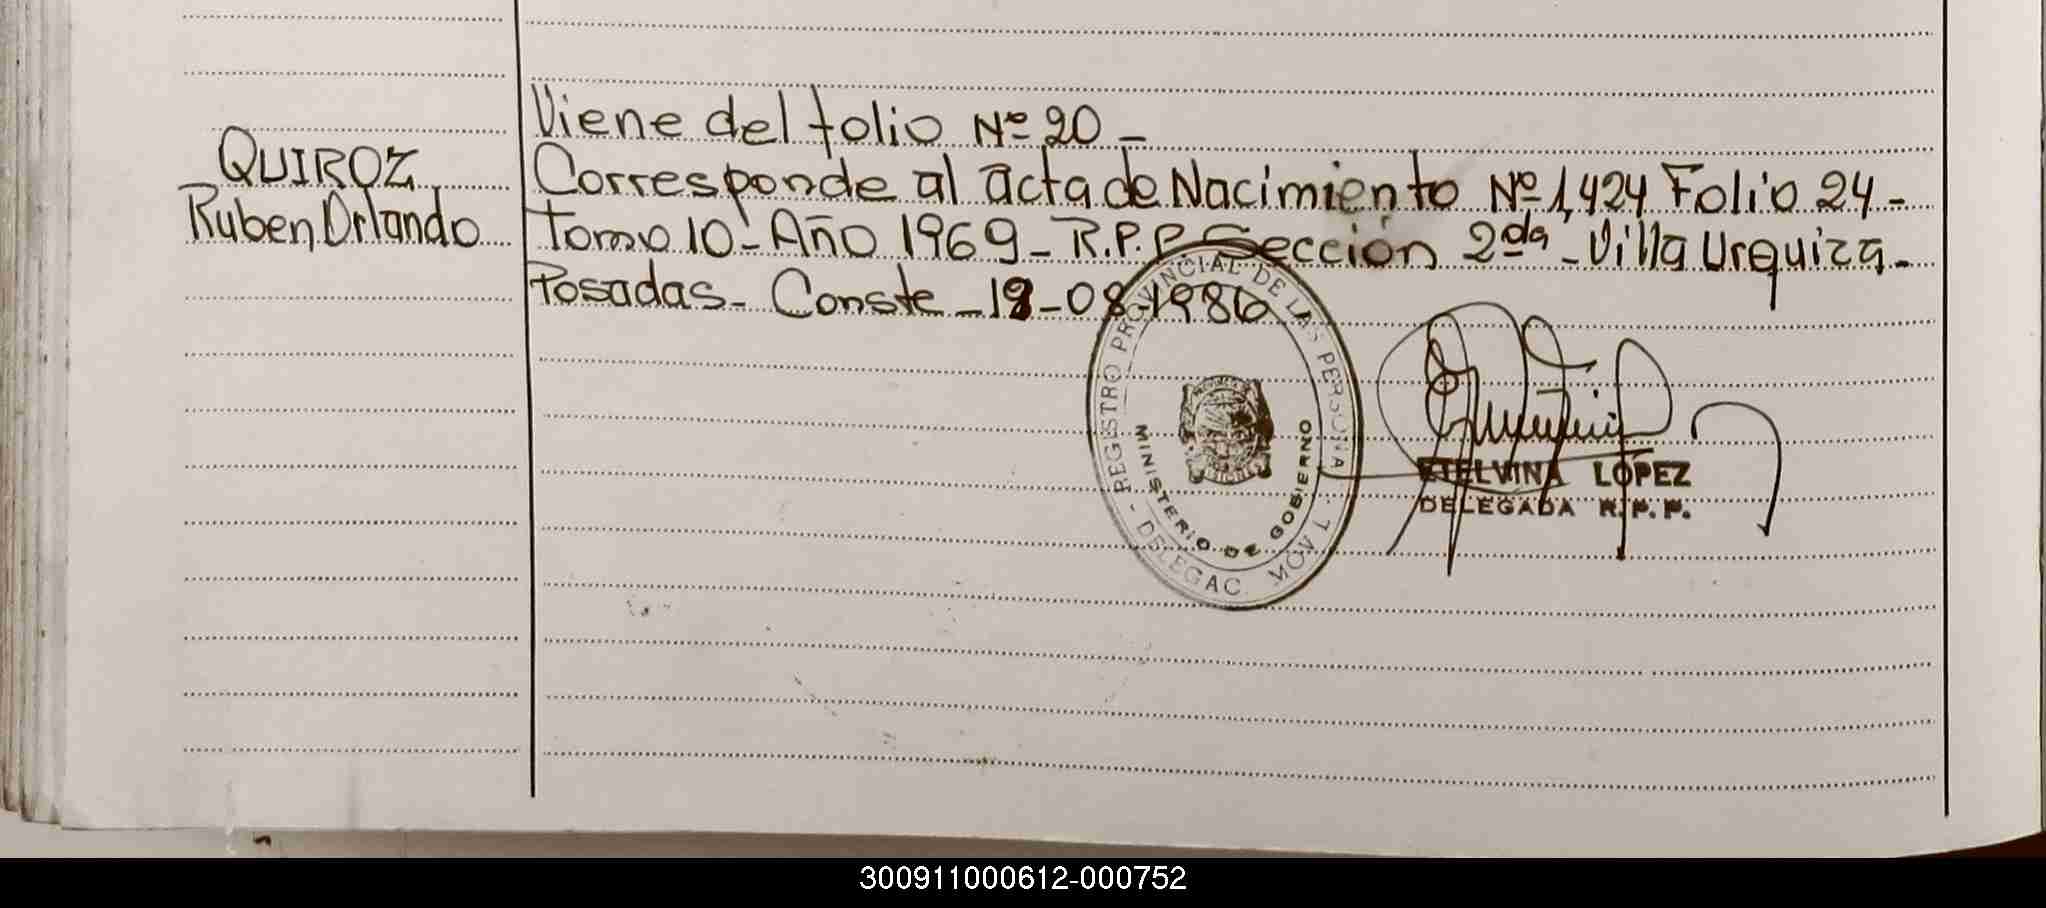 Viene del folio Nº 20 -
QUIROZ,
Corresponde al acta de Nacimiento Nº 1,424 Folio 24 -
Ruben Orlando
Tomo 10 - Año 1969 - R.P.P. Sección 2da - Villa Urquiza -
Posadas - Conste - 18-08-1986
REGISTRO PROVINCIAL DE LAS PERSONAS
MINISTERIO DE GOBIERNO
- DELEGAC. MOVIL -
ETELVINA LOPEZ
DELEGADA R.P.P.
300911000612-000752